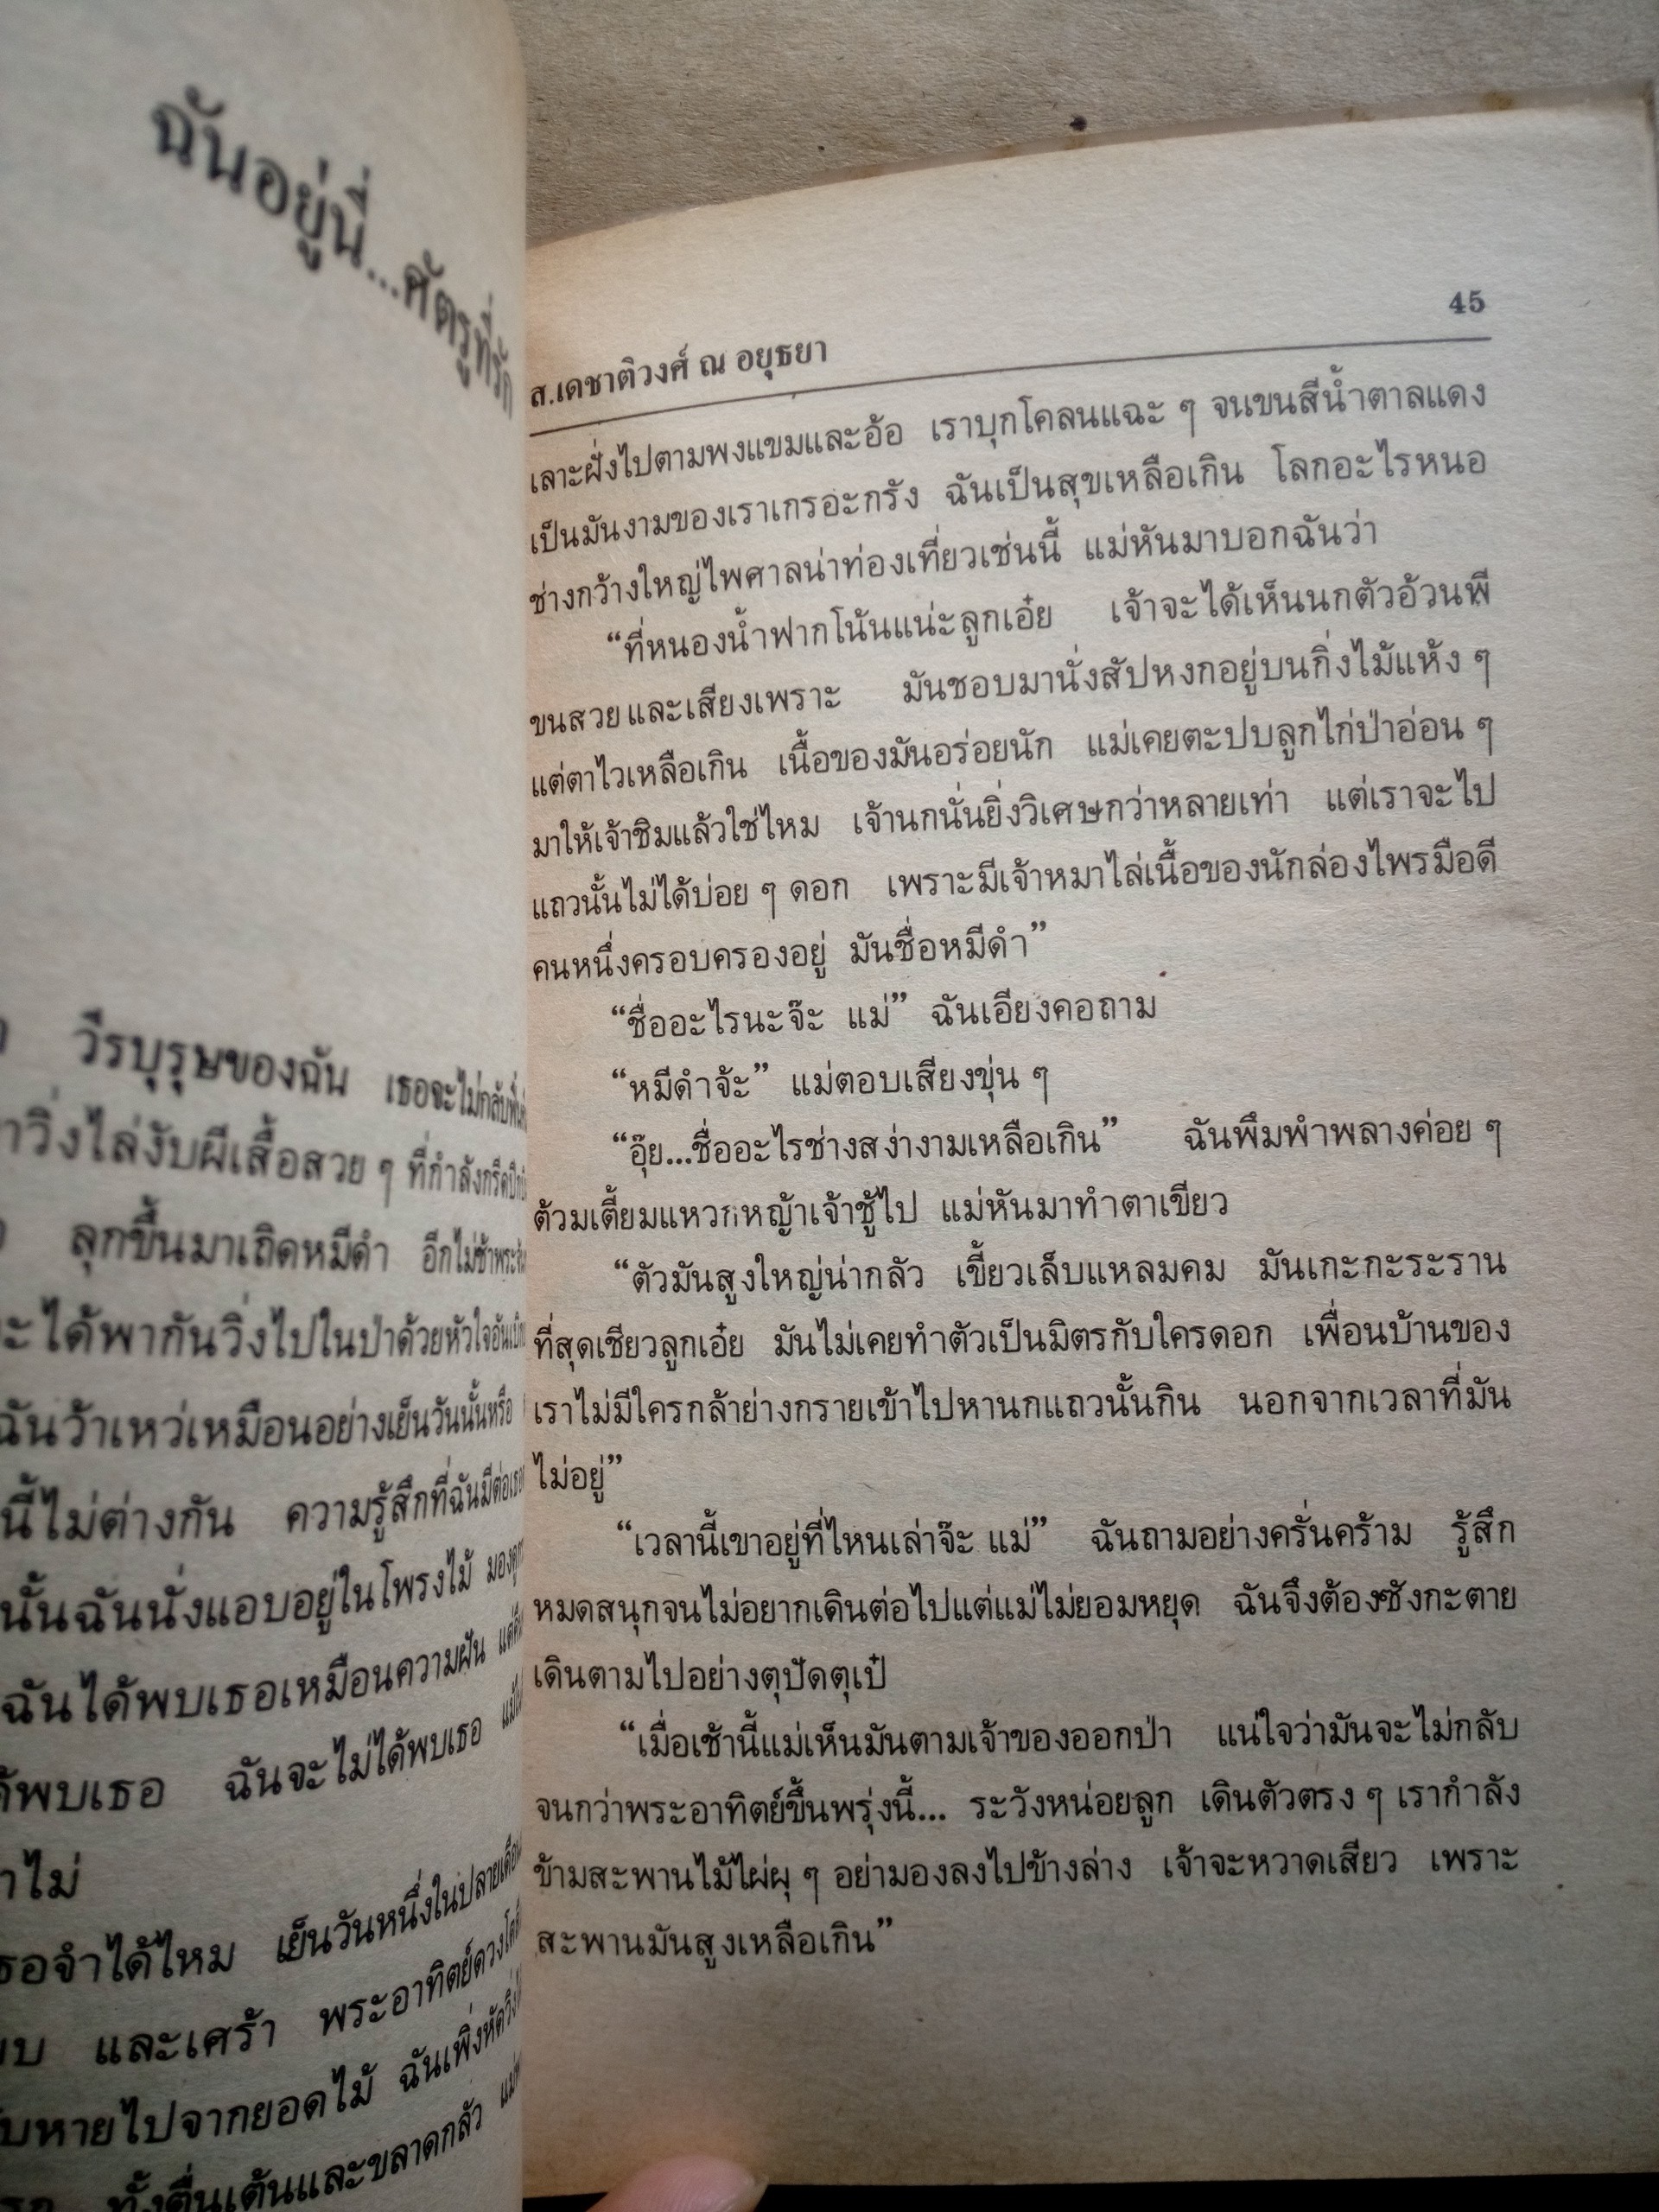 ฉันอยู่นี่...ศัตรูที่รัก
วีรบุรุษของฉัน เธอจะไม่กลับ
วิ่งไล่งับผีเสื้อสวย ๆ ที่กำลังกรีดปีก
ลูกขึ้นมาเถิดหมีดำ อีกไม่ช้าพระ
ได้พากันวิ่งไปในป่าด้วยหัวใจอัน
ฉันว้าเหว่เหมือนอย่างเย็นวันนั้นหรือ
นี้ไม่ต่างกัน ความรู้สึกที่ฉันมีต่อเธอ
นั้นฉันนั่งแอบอยู่ในโพรงไม้ มองดู
ฉันได้พบเธอเหมือนความฝัน
พบเธอ ฉันจะไม่ได้พบเธอ
ไม่
เธอจำได้ไหม เย็นวันหนึ่งในปลายเดือน
และเศร้า พระอาทิตย์ดวงโต
หายไปจากยอดไม้ ฉันเพิ่งหัดวิ่ง
ทั้งตื่นเต้นและขลาดกลัว
45
ส.เดชาติวงศ์ ณ อยุธยา
เลาะฝั่งไปตามพงแขมและอ้อ เราบุกโคลนแฉะ ๆ จนขนสีน้ำตาลแดง
เป็นมันงามของเราเกรอะกรัง ฉันเป็นสุขเหลือเกิน โลกอะไรหนอ
ช่างกว้างใหญ่ไพศาลน่าท่องเที่ยวเช่นนี้ แม่หันมาบอกฉันว่า
“ที่หนองน้ำฟากโน้นแน่ะลูกเอ๋ย เจ้าจะได้เห็นนกตัวอ้วนพี
ขนสวยและเสียงเพราะ มันชอบมานั่งสัปหงกอยู่บนกิ่งไม้แห้ง ๆ
แต่ตาไวเหลือเกิน เนื้อของมันอร่อยนัก แม่เคยตะปบลูกไก่ป่าอ่อน ๆ
มาให้เจ้าชิมแล้วใช่ไหม เจ้านกนั่นยิ่งวิเศษกว่าหลายเท่า แต่เราจะไป
แถวนั้นไม่ได้บ่อย ๆ ดอก เพราะมีเจ้าหมาไล่เนื้อของนักล่องไพรมือดี
คนหนึ่งครอบครองอยู่ มันชื่อหมีดำ”
“ชื่ออะไรนะจ๊ะ แม่” ฉันเอียงคอถาม
“หมีดำจ้ะ” แม่ตอบเสียงขุ่น ๆ
“อุ๊ย...ชื่ออะไรช่างสง่างามเหลือเกิน” ฉันพึมพำพลางค่อย ๆ
ต้วมเตี้ยมแหวกหญ้าเจ้าชู้ไป แม่หันมาทำตาเขียว
“ตัวมันสูงใหญ่น่ากลัว เขี้ยวเล็บแหลมคม มันเกะกะระราน
ที่สุดเชียวลูกเอ๋ย มันไม่เคยทำตัวเป็นมิตรกับใครดอก เพื่อนบ้านของ
เราไม่มีใครกล้าย่างกรายเข้าไปหานกแถวนั้นกิน นอกจากเวลาที่มัน
ไม่อยู่”
“เวลานี้เขาอยู่ที่ไหนเล่าจ๊ะ แม่” ฉันถามอย่างครั่นคร้าม รู้สึก
หมดสนุกจนไม่อยากเดินต่อไปแต่แม่ไม่ยอมหยุด ฉันจึงต้องซังกะตาย
เดินตามไปอย่างตุปัดตุเป๋
“เมื่อเช้านี้แม่เห็นมันตามเจ้าของออกป่า แน่ใจว่ามันจะไม่กลับ
จนกว่าพระอาทิตย์ขึ้นพรุ่งนี้... ระวังหน่อยลูก เดินตัวตรง ๆ เรากำลัง
ข้ามสะพานไม้ไผ่ผุ ๆ อย่ามองลงไปข้างล่าง เจ้าจะหวาดเสียว เพราะ
สะพานมันสูงเหลือเกิน”